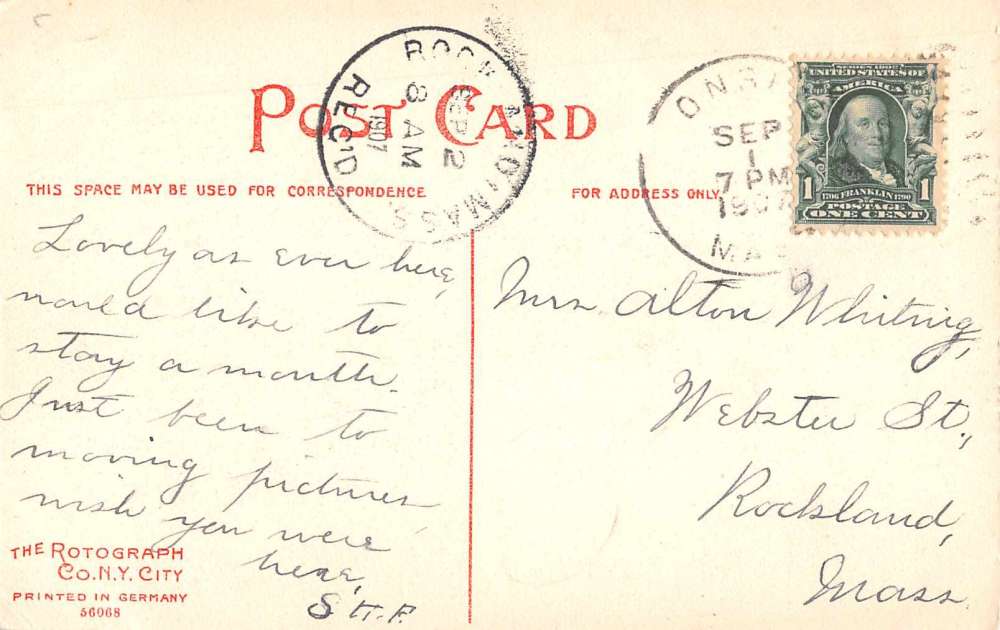 POST CARD
ROCK AND MASS
SEP 2
8 AM
1907
REC'D
SEP
1
7 PM
190
SERIES 1902
UNITED STATES OF
AMERICA
1 1706 FRANKLIN 1790 1
POSTAGE
ONE CENT
THIS SPACE MAY BE USED FOR CORRESPONDENCE
FOR ADDRESS ONLY
Lovely as ever here,
would like to
stay a month.
Just been to
moving pictures,
wish you were
here,
S H. P.
Mrs. Alton Whiting,
Webster St.,
Rockland,
Mass
THE ROTOGRAPH
CO. N.Y. CITY
PRINTED IN GERMANY
56068